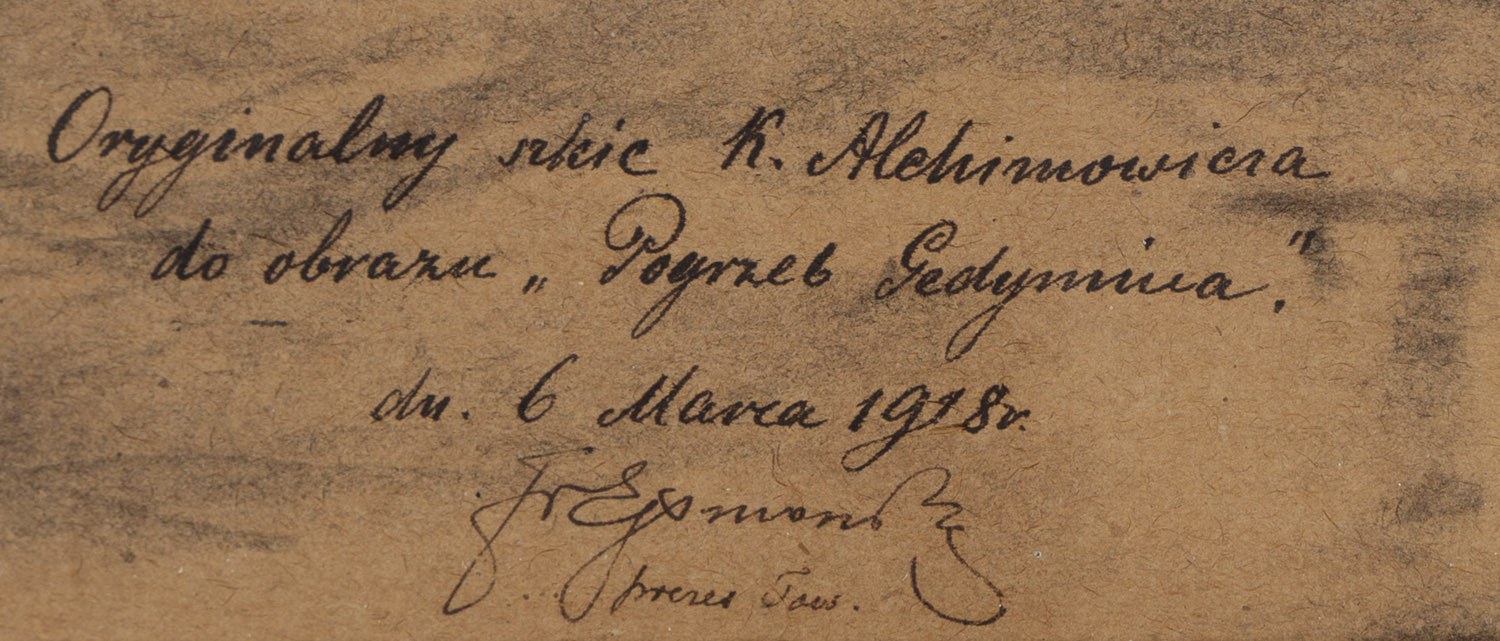 Oryginalny szkic K. Alchimowicza
do obrazu „Pogrzeb Gedymina."
dn. 6 Marca 1918 r.
Fr Ejsmond
prezes Tow.